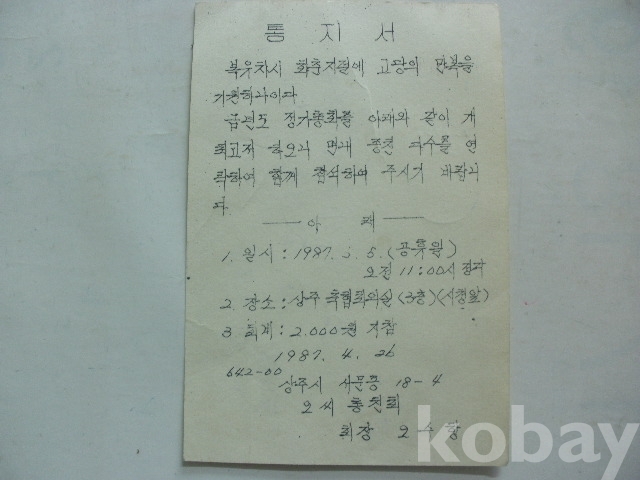 통지서
복유차시 화춘지절에 고당의 만복을
기원하나이다
금년도 정기총회를 아래와 같이 개
최고저 하오니 면내 종친 다수를 연
락하여 함께 참석하여 주시기 바랍니
다.
아 래
1. 일시 : 1987. 5. 5. (공휴일)
오전 11:00시 정각
2. 장소 : 상주 축협회의실 (3층) (시청앞)
3. 회계 : 2.000원 지참
1987. 4. 26
642-00
상주시 서문동 18-4
오씨 종친회
회장 오수
kobay